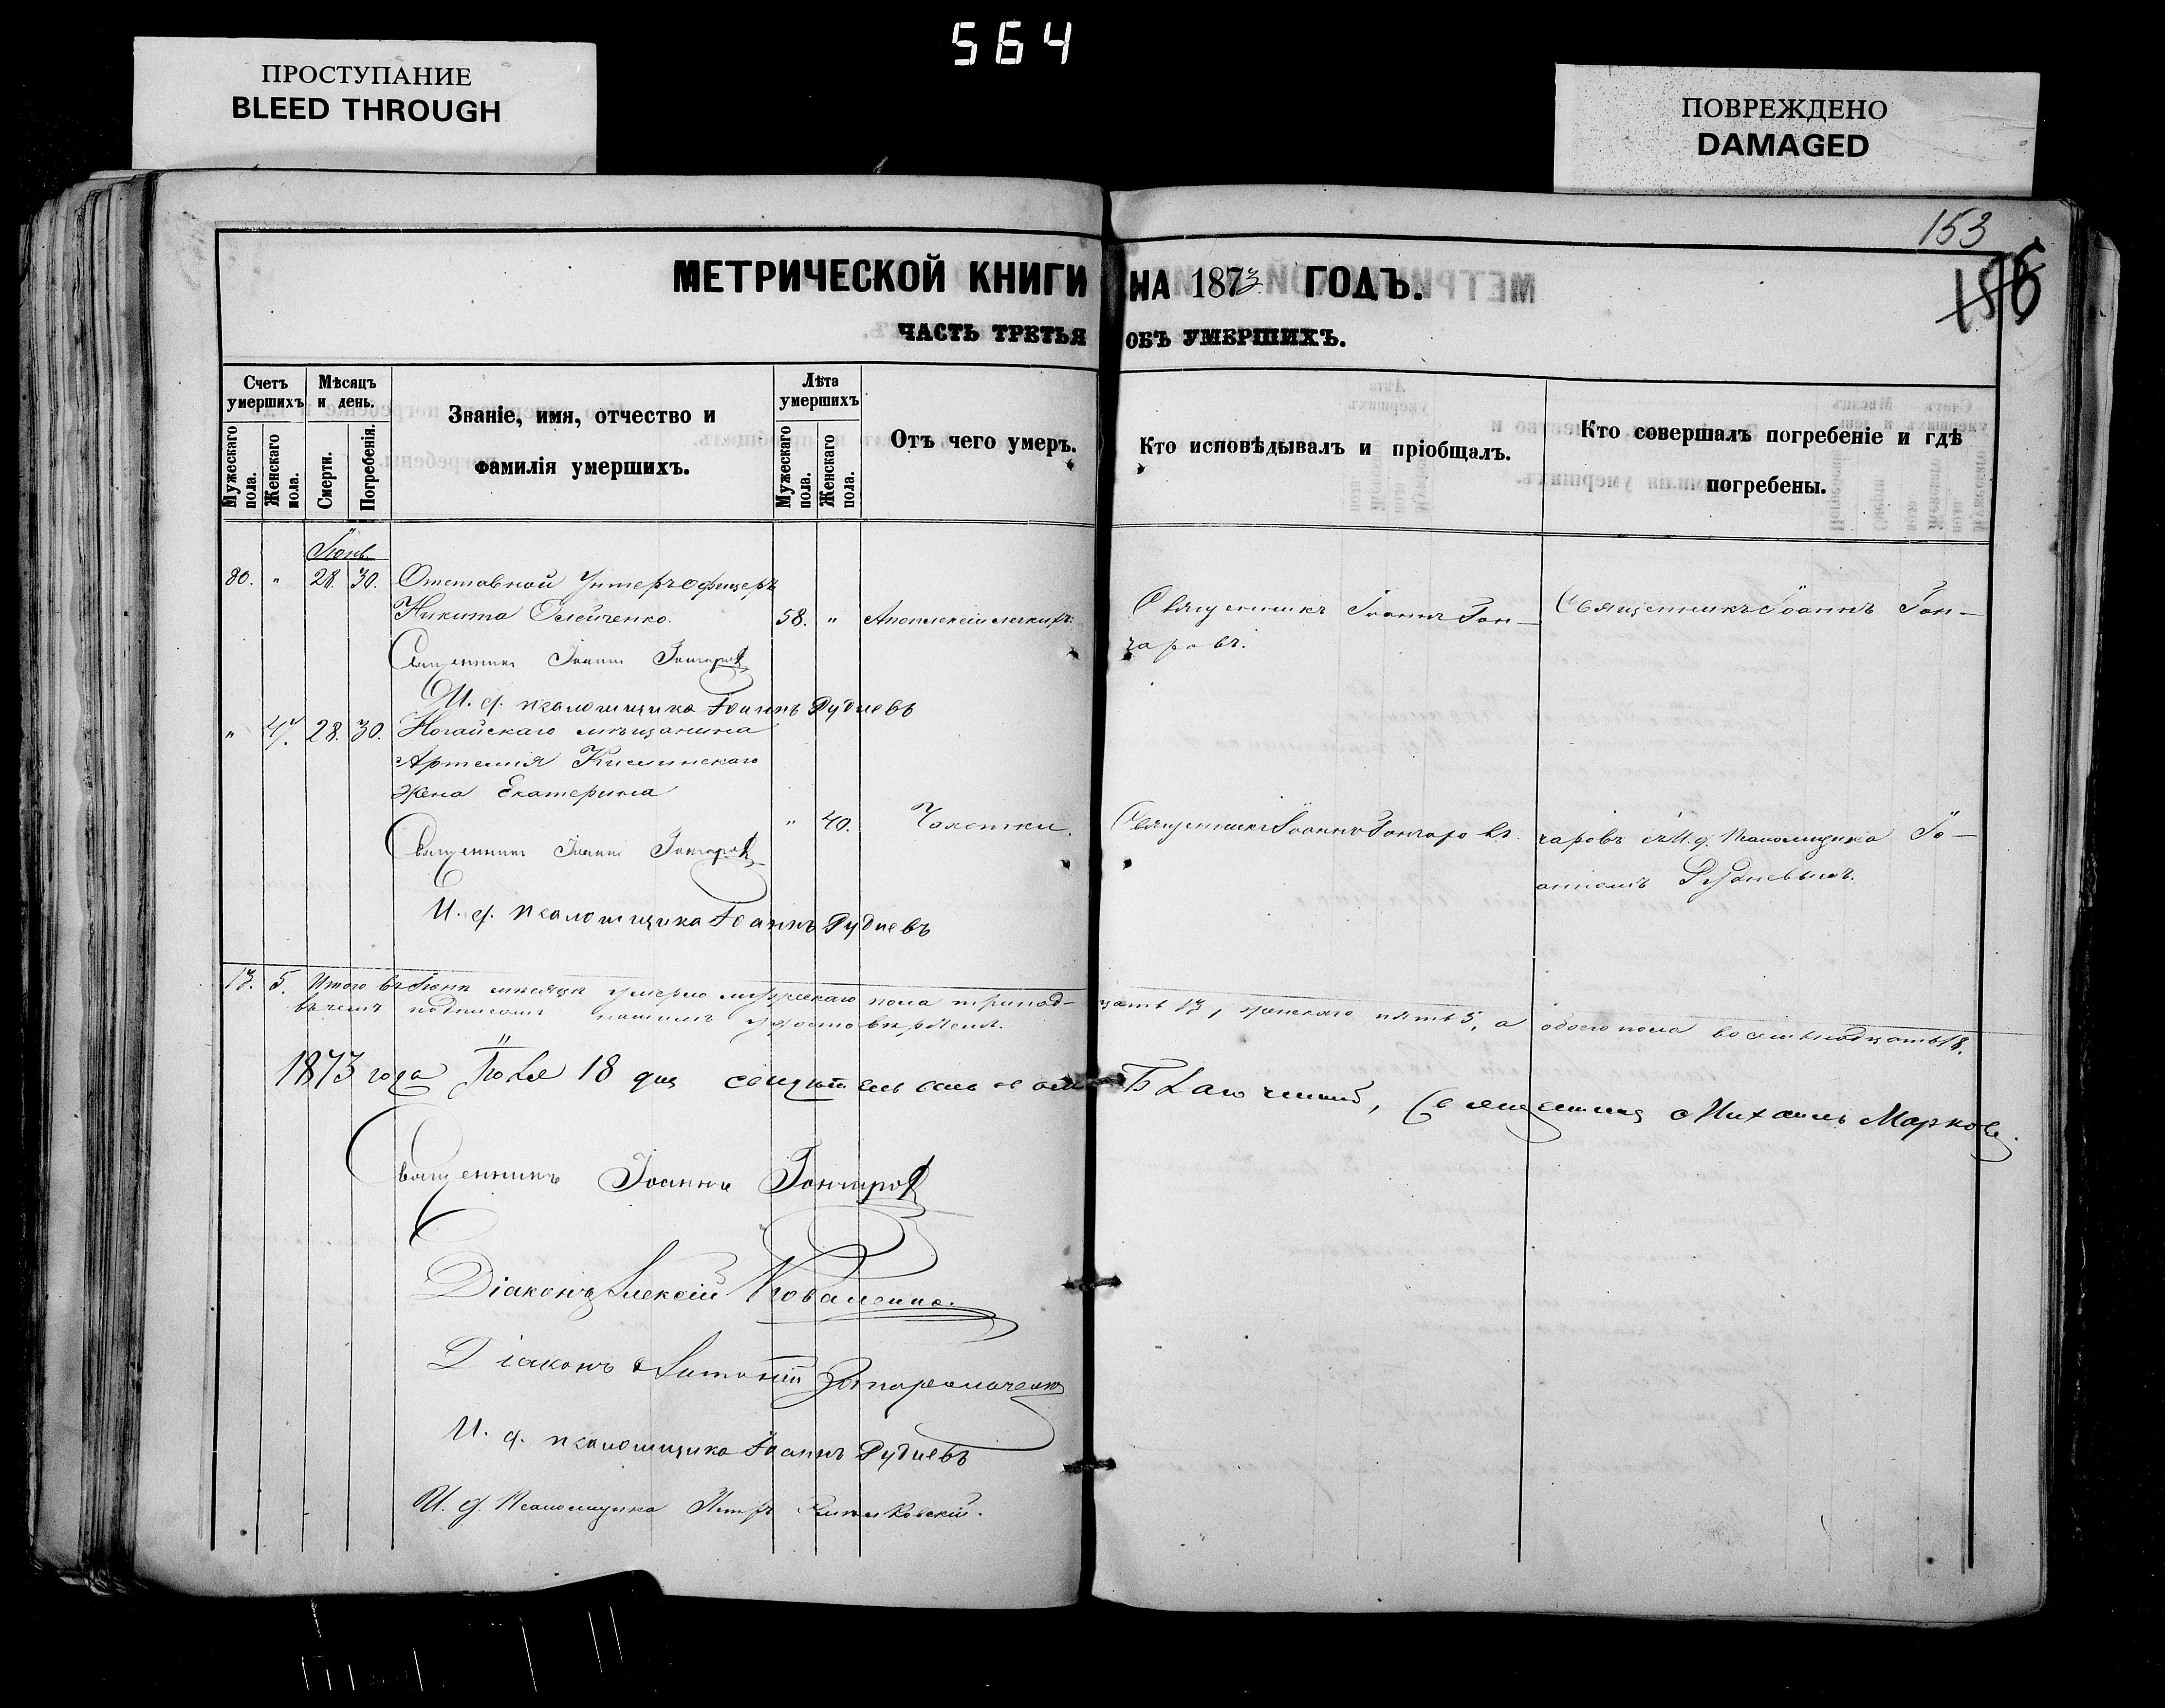 564
ПРОСТУПАНИЕ
BLEED THROUGH
ПОВРЕЖДЕНО
DAMAGED
153
МЕТРИЧЕСКОЙ КНИГИ НА 1873 ГОДЪ.
ЧАСТЬ ТРЕТЬЯ ОБЪ УМЕРШИХЪ.
Счетъ умершихъ
Мужескаго пола.
Женскаго пола.
Мѣсяцъ и день.
Смерти.
Погребенія.
Званіе, имя, отчество и
фамилія умершихъ.
Лѣта умершихъ
Мужескаго пола.
Женскаго пола.
Отъ чего умеръ.
Кто исповѣдывалъ и пріобщалъ.
Кто совершалъ погребеніе и гдѣ
погребены.
Іюнь.
30. " 28. 30. Отставной Унтеръ офицеръ
Никита Олейченко. 58. " Апоплексіи легкихъ. Священникъ Іоаннъ Гон- Священникъ Іоаннъ Гон-
чаровъ.
Священникъ Іоаннъ Гончаровъ
И. д. псаломщика Іоаннъ Рудневъ
" 28. 30. Ногайскаго мѣщанина
Артемія
жена Екатерина
" 40. Чахотки. Священникъ Іоаннъ Гончаровъ. чаровъ съ И. д. Псаломщика Іо-
анномъ Рудневымъ.
Священникъ Іоаннъ Гончаровъ
И. д. псаломщика Іоаннъ Рудневъ
13. 5. Итого въ Іюнѣ мѣсяцѣ умерло мужескаго пола тринад- цать 13, женскаго пять 5, а обоего пола восемнадцать 18.
въ чемъ подписомъ нашимъ удостовѣряемъ.
1873 года Іюля 18 дня свидѣтельствовалъ Благочинный, Священникъ Михаилъ Марковъ.
Священникъ Іоаннъ Гончаровъ
Діаконъ Алексій Коваленко.
Діаконъ Антоній
И. д. псаломщика Іоаннъ Рудневъ
И. д. Псаломщика Петръ